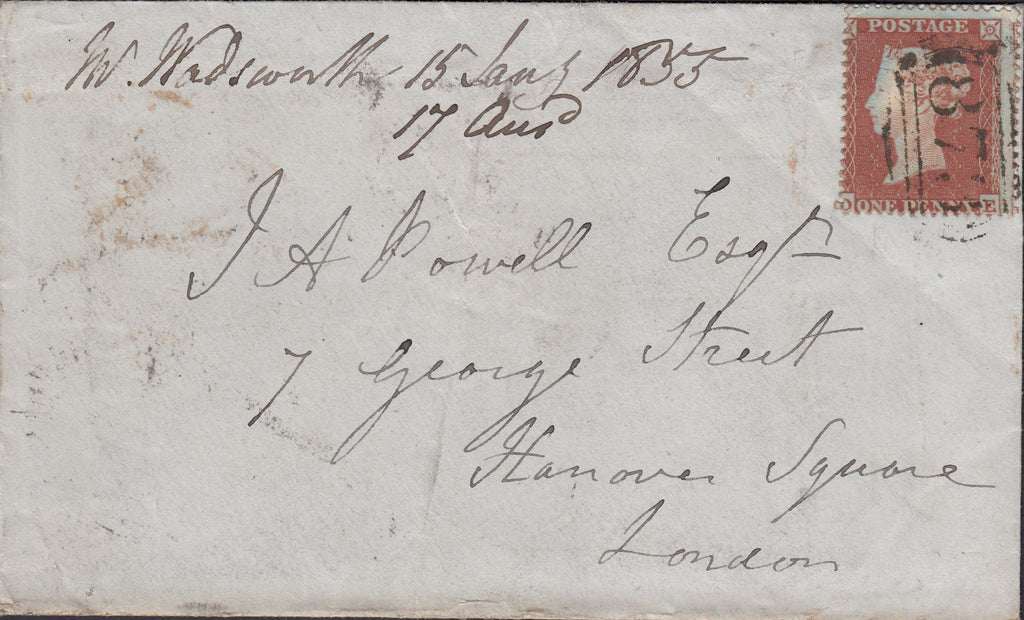 W. Wadsworth 15 Jany 1855
17 Ansd
POSTAGE
ONE PENNY
E
J A Powell Esqr
7 George Street
Hanover Square
London